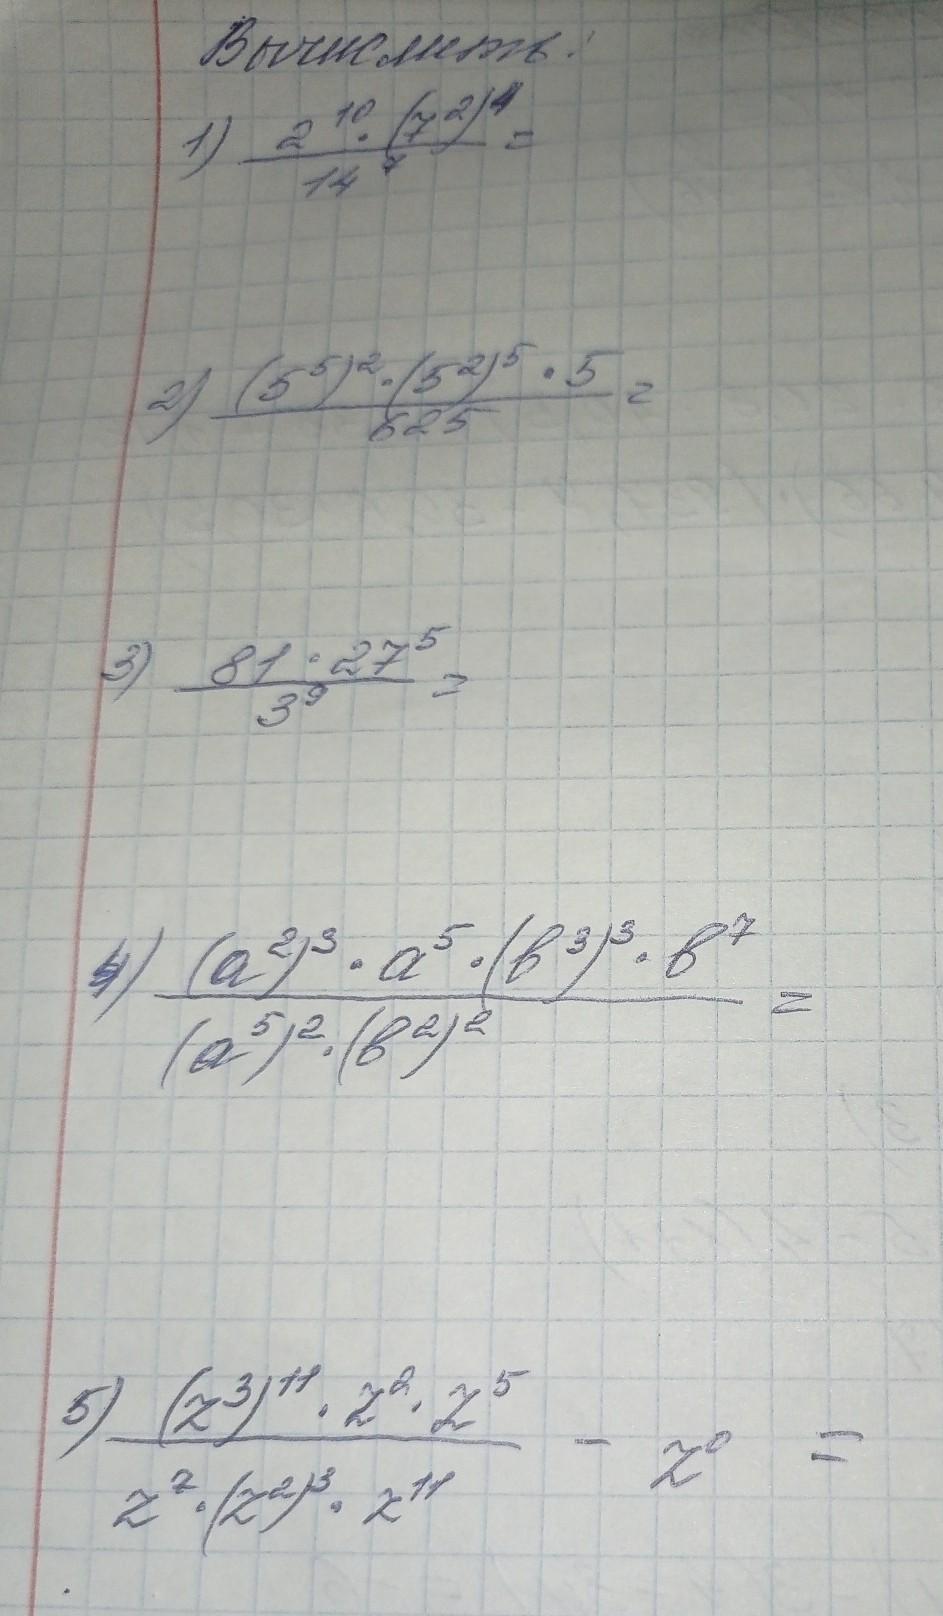 Вычислить:
1) 2^10 · (7^2)^4 / 14^7 =
2) (5^5)^2 · (5^2)^5 · 5 / 625 =
3) 81 · 27^5 / 3^9 =
4) (a^2)^3 · a^5 · (b^3)^3 · b^7 / (a^5)^2 · (b^2)^2 =
5) (z^3)^11 · z^2 · z^5 / z^7 · (z^2)^3 · z^11 - z^0 =